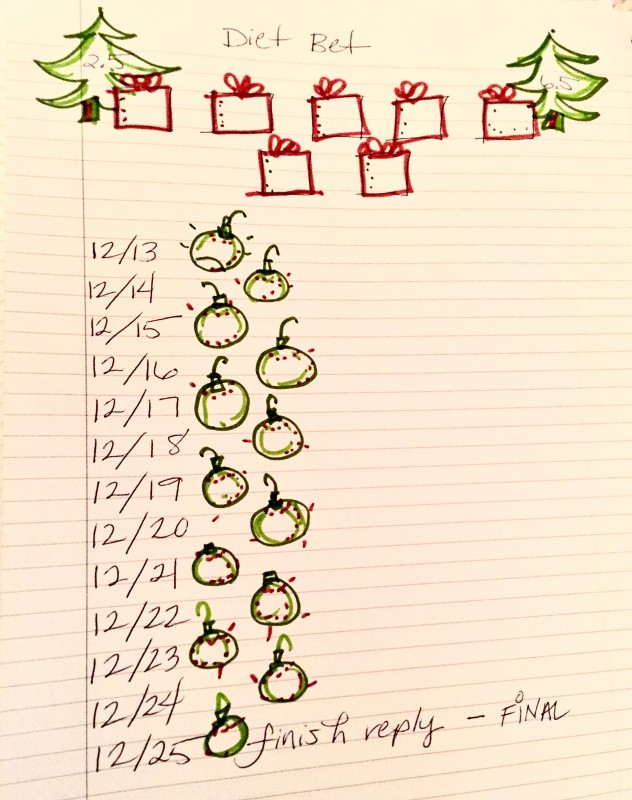 Diet Bet
2.5
6.5
12/13
12/14
12/15
12/16
12/17
12/18
12/19
12/20
12/21
12/22
12/23
12/24
12/25 finish reply - FINAL